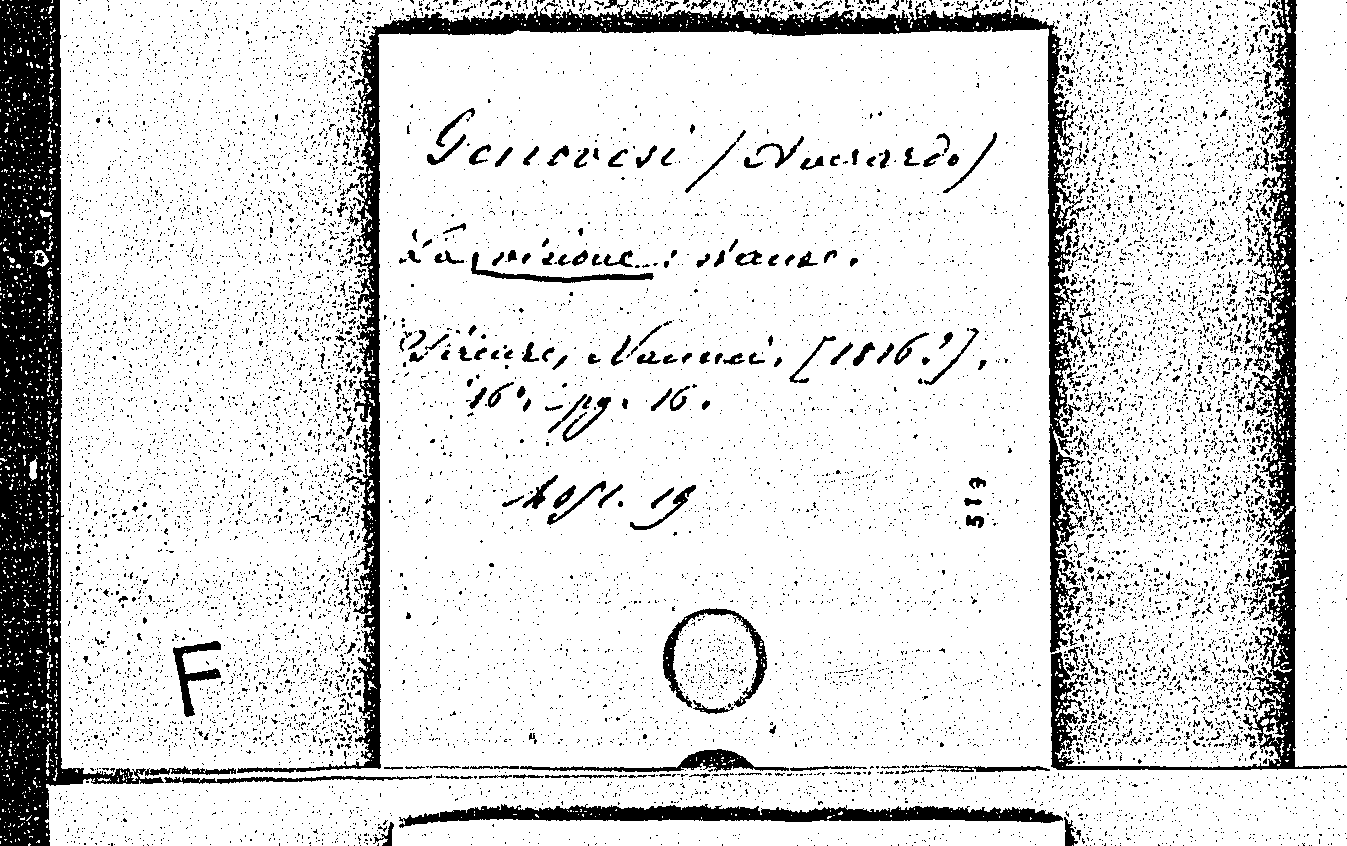 Genovesi (Accurado.)
La visione: stanze.
Firenze, Nannei, [1816?].
16°. pg. 16.
Aost. 19
519
F